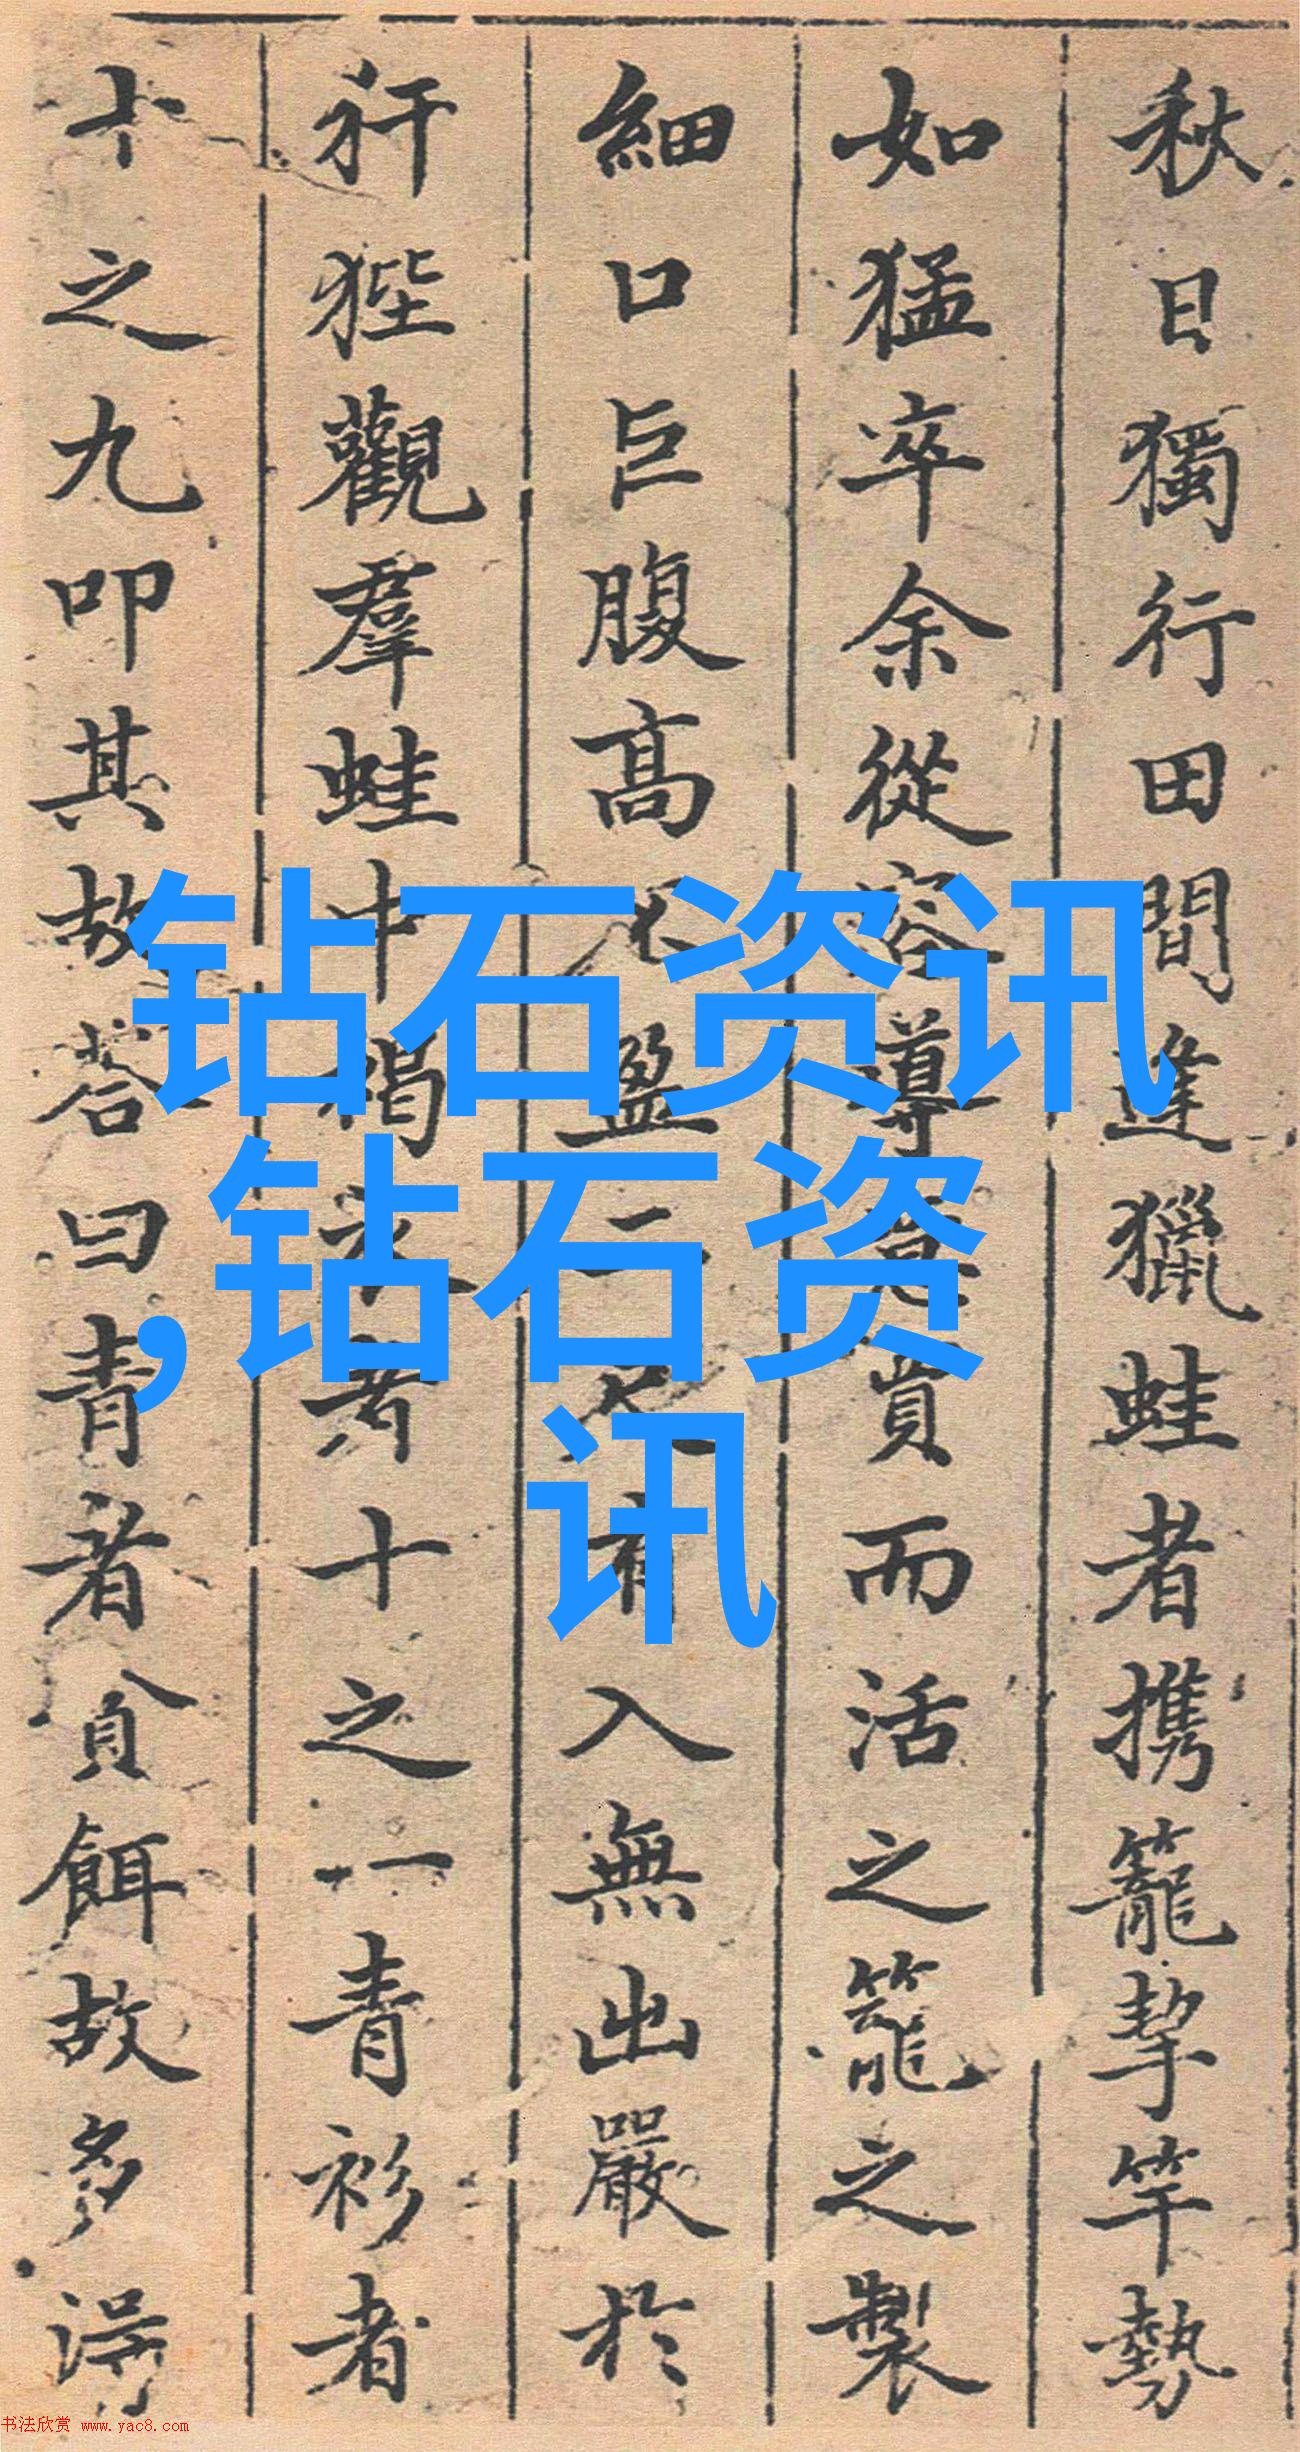 秋日獨行田間逢獵蛙者携籠挈竿勢
如猛卒余從容導賞而活之籠之製
細口巨腹高不盈二尺有入無出嚴於
犴狴觀羣蛙中褐衣者十之一青衫者
十之九叩其故答曰青者貪餌故多得
钻石资讯
,钻石资
讯
书法欣赏 www.yac8.com